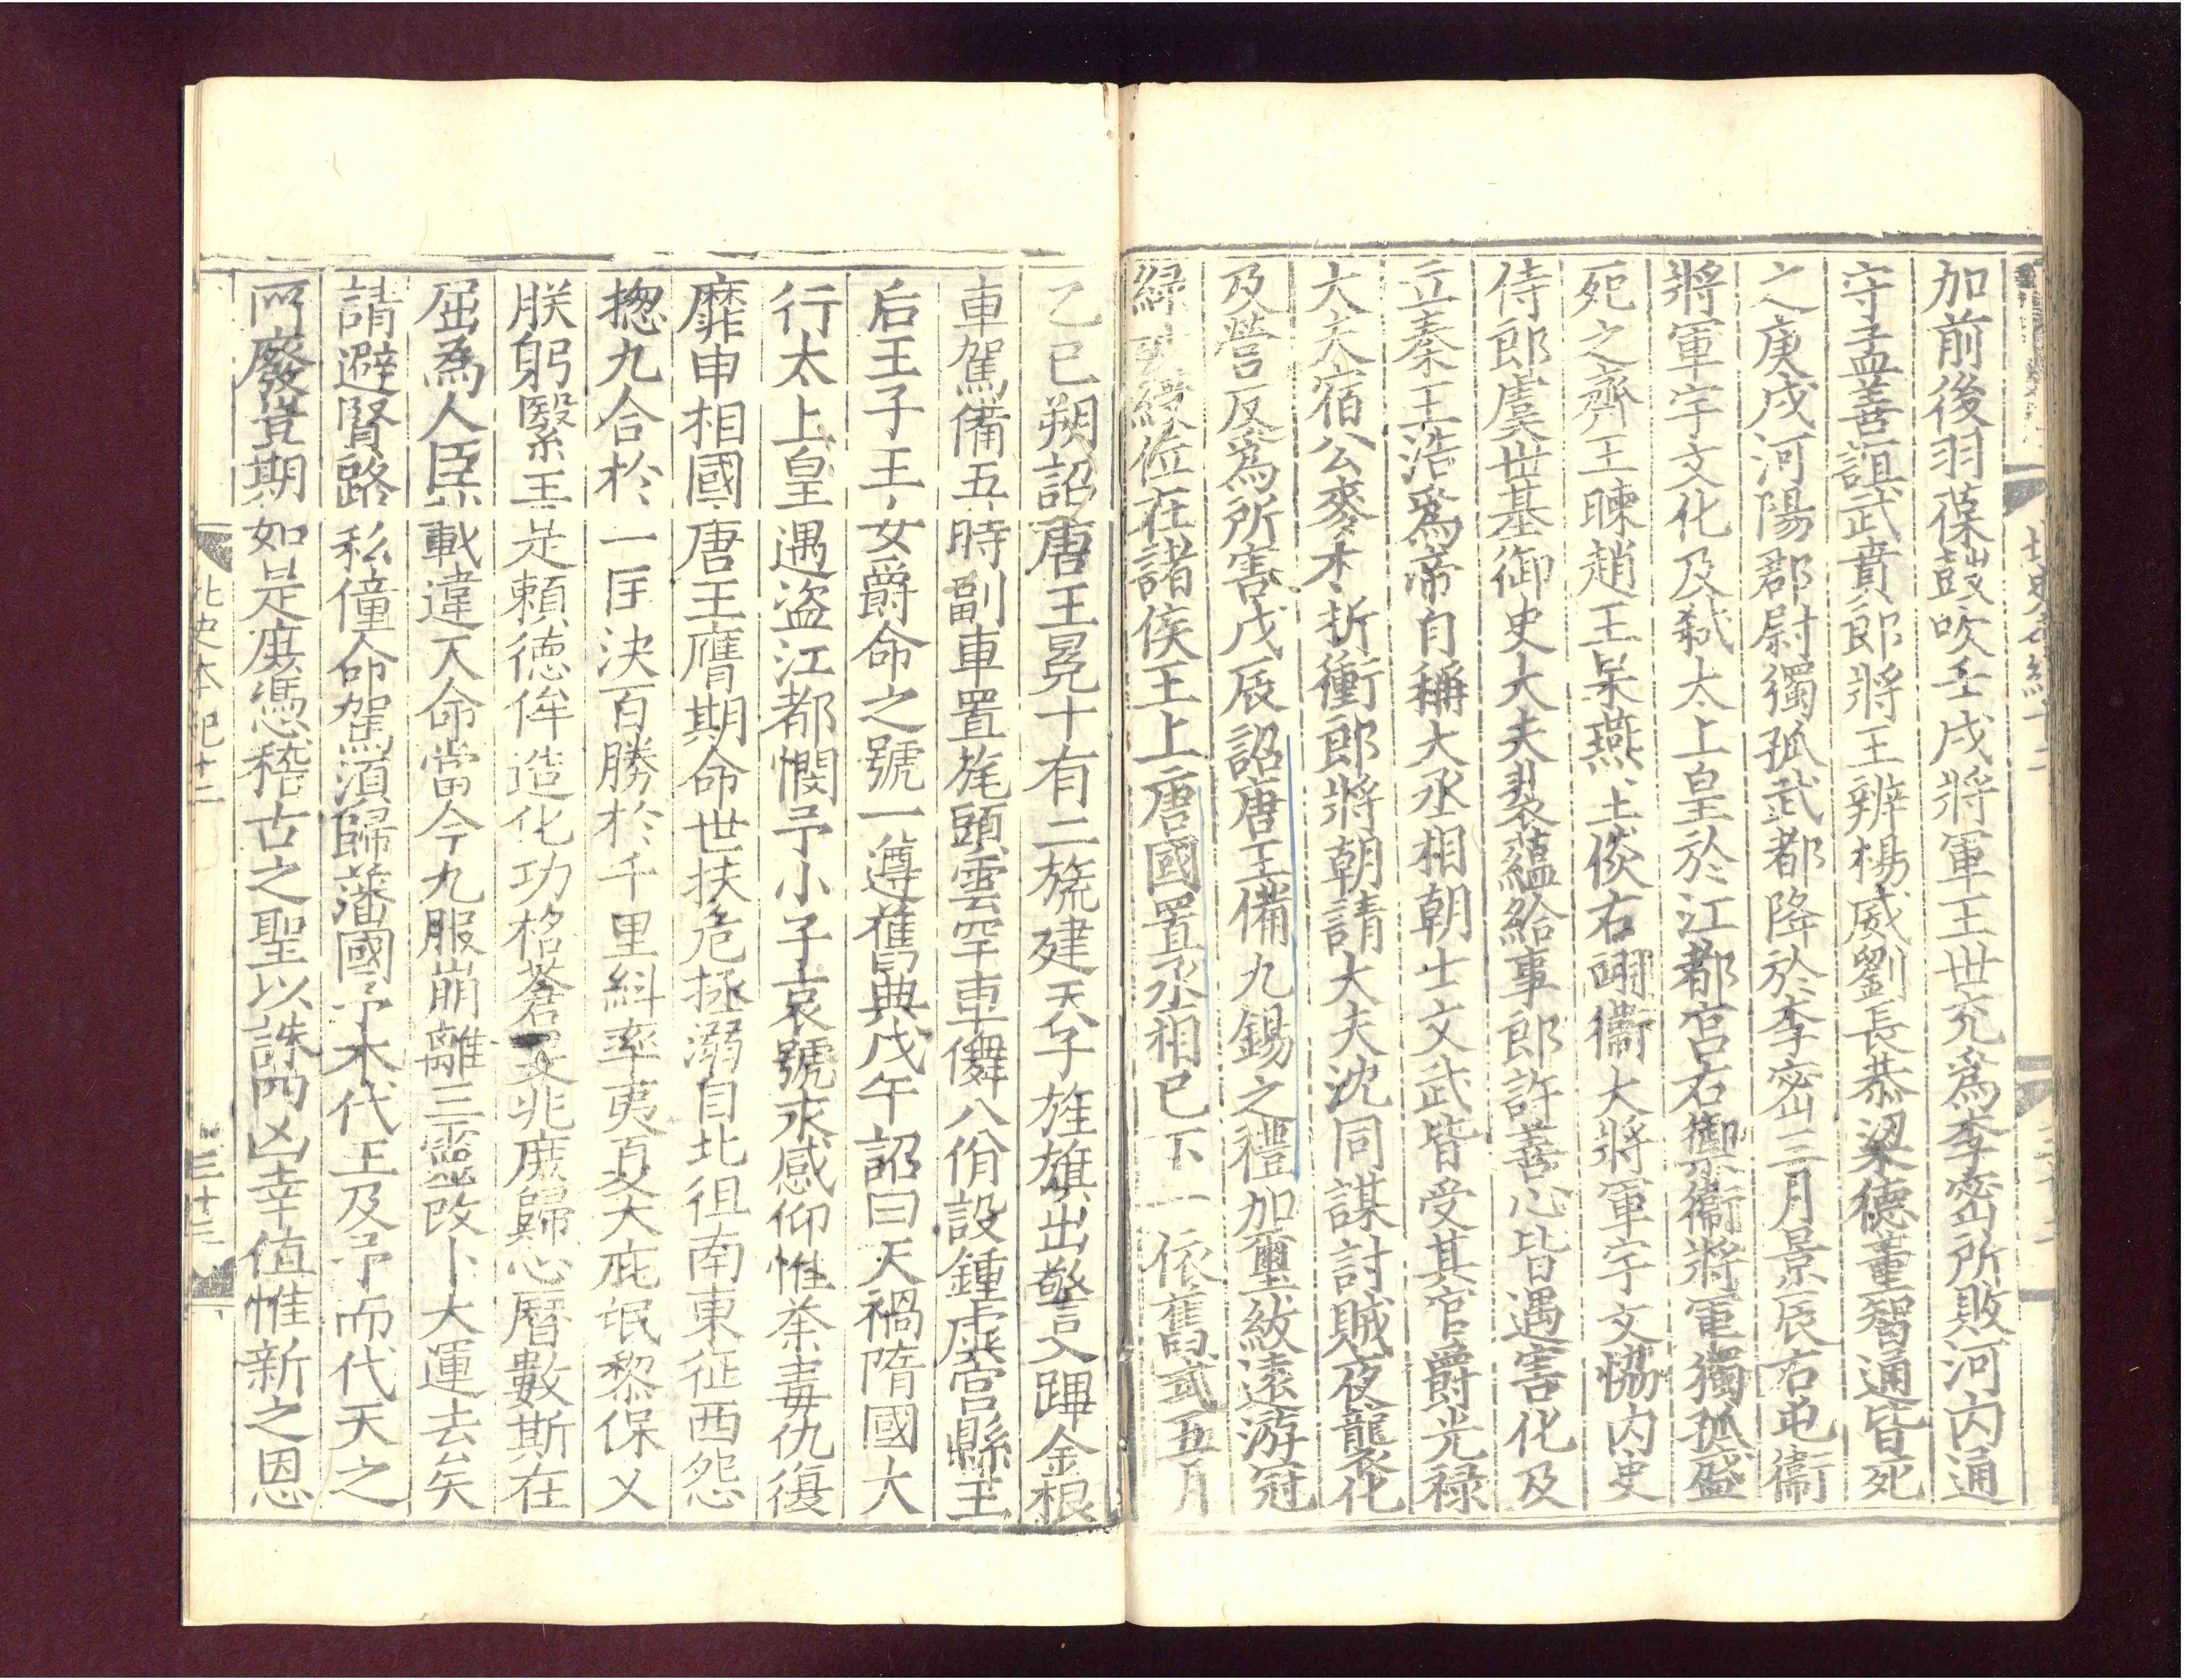 加前後羽葆鼓吹壬戌將軍王世充爲李密所敗河内通
守孟善誼武賁郎將王辨楊威劉長恭梁德董智通皆死
之庚戌河陽郡尉獨孤武都降於李密三月景辰右屯衞
將軍宇文化及弒太上皇於江都宮右禦衞將軍獨孤盛
死之齊王暕趙王杲燕王倓右翊衞大將軍宇文協内史
侍郎虞世基御史大夫裴蘊給事郎許善心皆遇害化及
立秦王浩爲帝自稱大丞相朝士文武皆受其官爵光禄
大夫宿公麥才折衝郎將朝請大夫沈同謀討賊夜襲化
及營反爲所害戊辰詔唐王備九錫之禮加璽紱遠游冠
緑綟綬位在諸侯王上唐國置丞相已下一依舊式五月
乙巳朔詔唐王冕十有二旒建天子旌旗出警入蹕金根
車駕備五時副車置旄頭雲罕車儛八佾設鍾虡宮縣王
后王子王女爵命之號一遵舊典戊午詔曰天禍隋國大
行太上皇遇盜江都憫予小子哀號永感仰惟荼毒仇復
靡申相國唐王膺期命世扶危拯溺自北徂南東征西怨
揔九合於一匡決百勝於千里糾率夷夏大庇氓黎保乂
朕躬繄王是賴德侔造化功格蒼旻兆庶歸心曆數斯在
屈為人臣載違天命當今九服崩離三靈改卜大運去矣
請避賢路私僮命駕須歸藩國予本代王及予而代天之
所廢豈期如是庶憑稽古之聖以誅四凶幸值惟新之恩
北史本紀十二
三十三